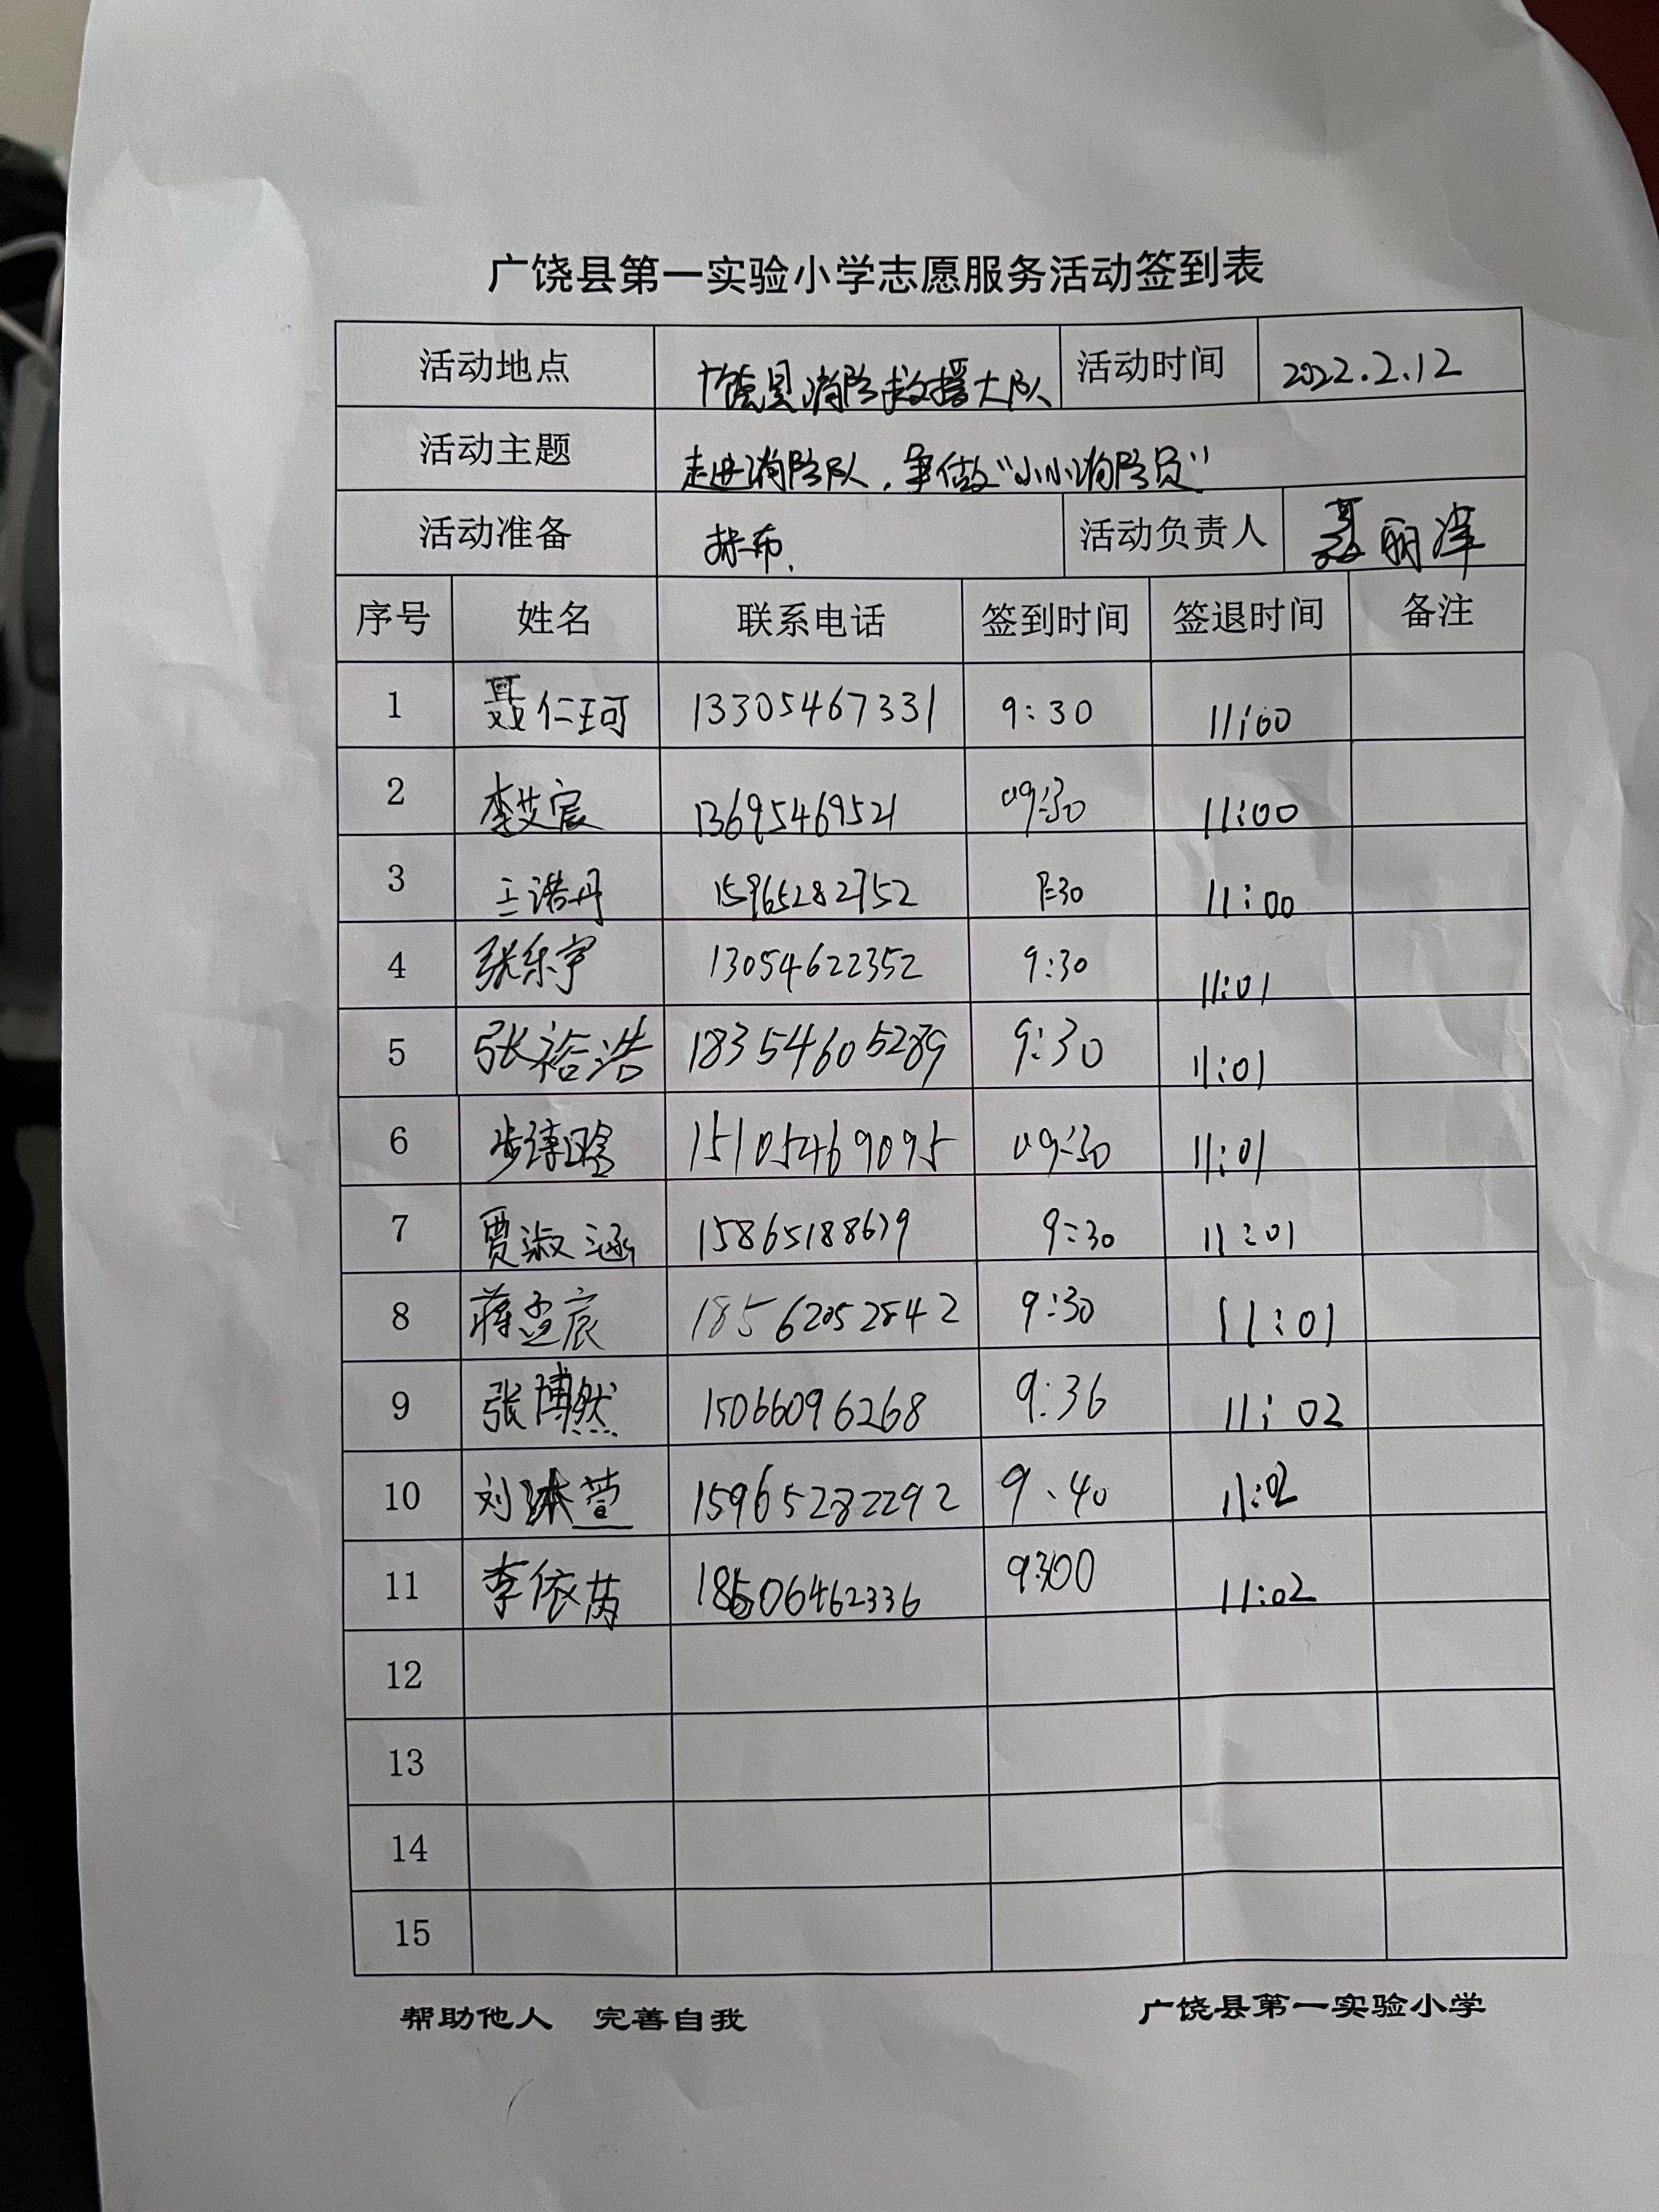 广饶县第一实验小学志愿服务活动签到表
活动地点 广饶县消防救援大队 活动时间 2022.2.12
活动主题 走进消防队，争做“小小消防员”
活动准备 活动负责人 聂丽泽
序号 姓名 联系电话 签到时间 签退时间 备注
1 聂仁珂 13305467331 9:30 11:00
2 李艾宸 13695469521 09:30 11:00
3 王诺丹 15965282752 11:00
4 张乐宇 13054622352 9:30 11:01
5 张裕浩 18354605289 9:30 11:01
6 步 15105469095 09:30 11:01
7 贾淑涵 15865188679 9:30 11:01
8 蒋孟宸 18562052842 9:30 11:01
9 张博然 15066096268 9:36 11:02
10 刘沐萱 15965282292 9:40 11:02
11 李依芮 18506462336 11:02
12
13
14
15
帮助他人 完善自我 广饶县第一实验小学